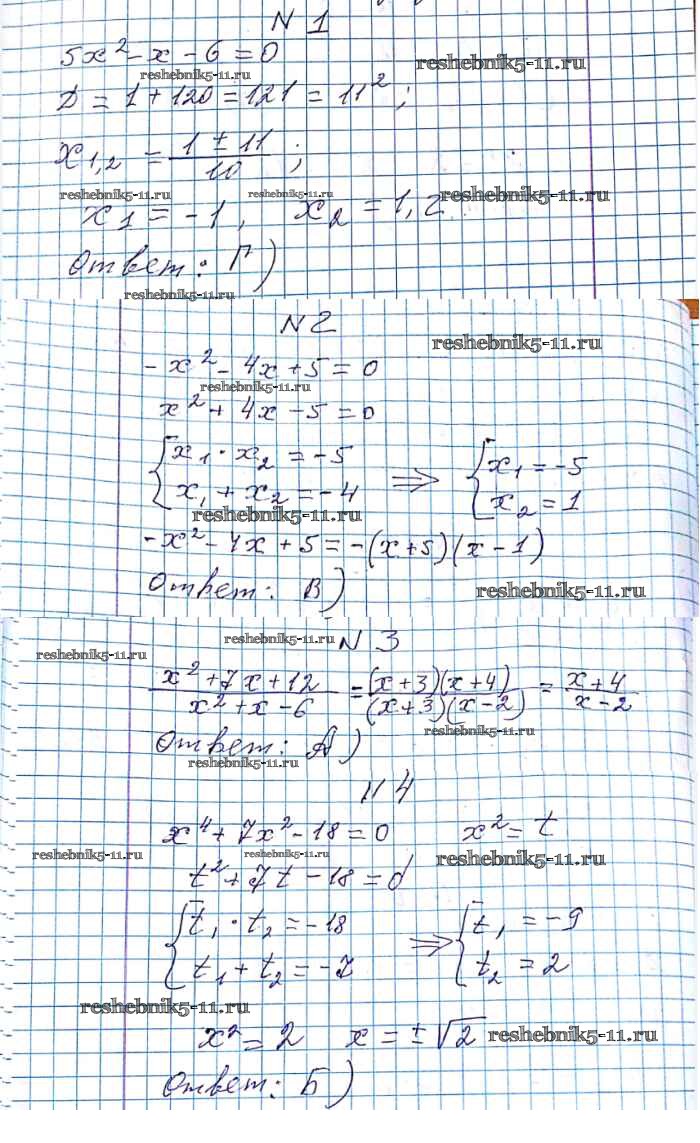 N 1
5x² - x - 6 = 0
reshebnik5-11.ru reshebnik5-11.ru
D = 1 + 120 = 121 = 11² ;
x₁,₂ = (1 ± 11)/10 ;
reshebnik5-11.ru reshebnik5-11.ru reshebnik5-11.ru
x₁ = -1, x₂ = 1,2
Ответ: Г)
reshebnik5-11.ru
N 2
reshebnik5-11.ru
-x² - 4x + 5 = 0
reshebnik5-11.ru
x² + 4x - 5 = 0
{ x₁ · x₂ = -5 ⇒ { x₁ = -5
x₁ + x₂ = -4 x₂ = 1
reshebnik5-11.ru
-x² - 4x + 5 = -(x+5)(x-1)
Ответ: В) reshebnik5-11.ru
reshebnik5-11.ru N 3
reshebnik5-11.ru
(x² + 7x + 12)/(x² + x - 6) = (x+3)(x+4)/(x+3)(x-2) = (x+4)/(x-2)
reshebnik5-11.ru
Ответ: А)
reshebnik5-11.ru
N 4
x⁴ + 7x² - 18 = 0 x² = t
reshebnik5-11.ru reshebnik5-11.ru reshebnik5-11.ru
t² + 7t - 18 = 0
{ t₁ · t₂ = -18 ⇒ { t₁ = -9
t₁ + t₂ = -7 t₂ = 2
reshebnik5-11.ru
x² = 2 x = ±√2 reshebnik5-11.ru
Ответ: Б)